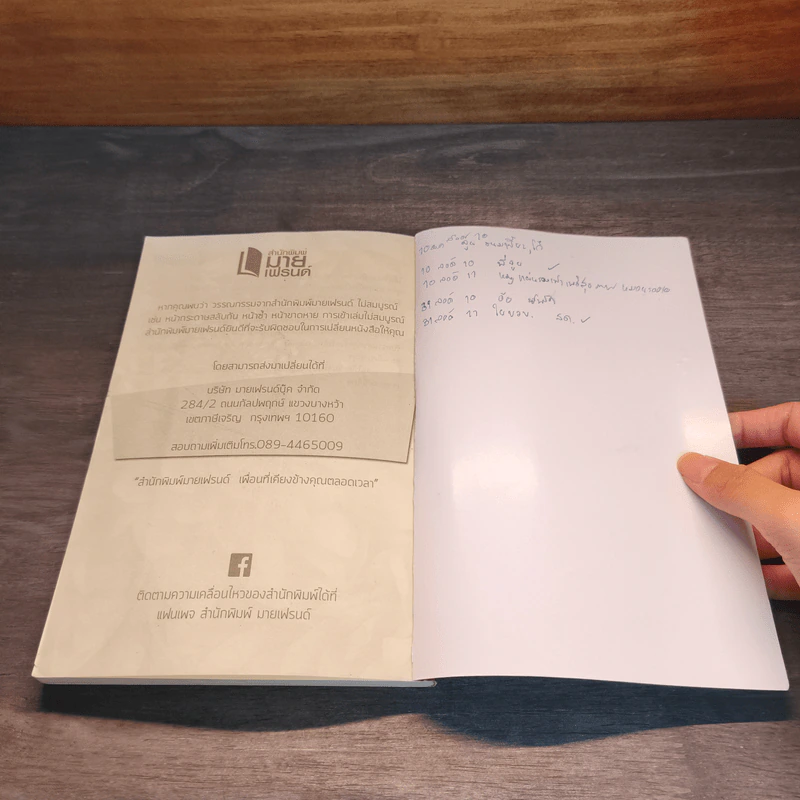 สำนักพิมพ์
มาย
เฟรนด์
หากคุณพบว่า วรรณกรรมจากสำนักพิมพ์มายเฟรนด์ ไม่สมบูรณ์
เช่น หน้ากระดาษสลับกัน หน้าซ้ำ หน้าขาดหาย การเข้าเล่มไม่สมบูรณ์
สำนักพิมพ์มายเฟรนด์ยินดีที่จะรับผิดชอบในการเปลี่ยนหนังสือให้คุณ
โดยสามารถส่งมาเปลี่ยนได้ที่
บริษัท มายเฟรนด์บุ๊ค จำกัด
284/2 ถนนกัลปพฤกษ์ แขวงบางหว้า
เขตภาษีเจริญ กรุงเทพฯ 10160
สอบถามเพิ่มเติมโทร.089-4465009
"สำนักพิมพ์มายเฟรนด์ เพื่อนที่เคียงข้างคุณตลอดเวลา"
f
ติดตามความเคลื่อนไหวของสำนักพิมพ์ได้ที่
แฟนเพจ สำนักพิมพ์ มายเฟรนด์
10
10 10
10 17
31 10
31 17